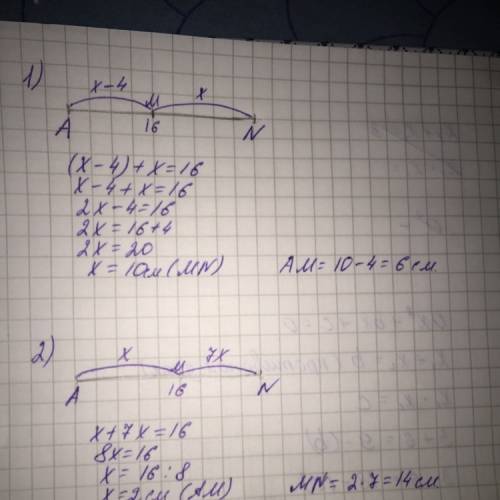 1)
x-4 x
A M N
16
(x-4)+x=16
x-4+x=16
2x-4=16
2x=16+4
2x=20
x=10см (MN) AM=10-4=6 см
2)
x 7x
A M N
16
x+7x=16
8x=16
x=16:8
x=2см (AM) MN=2·7=14 см